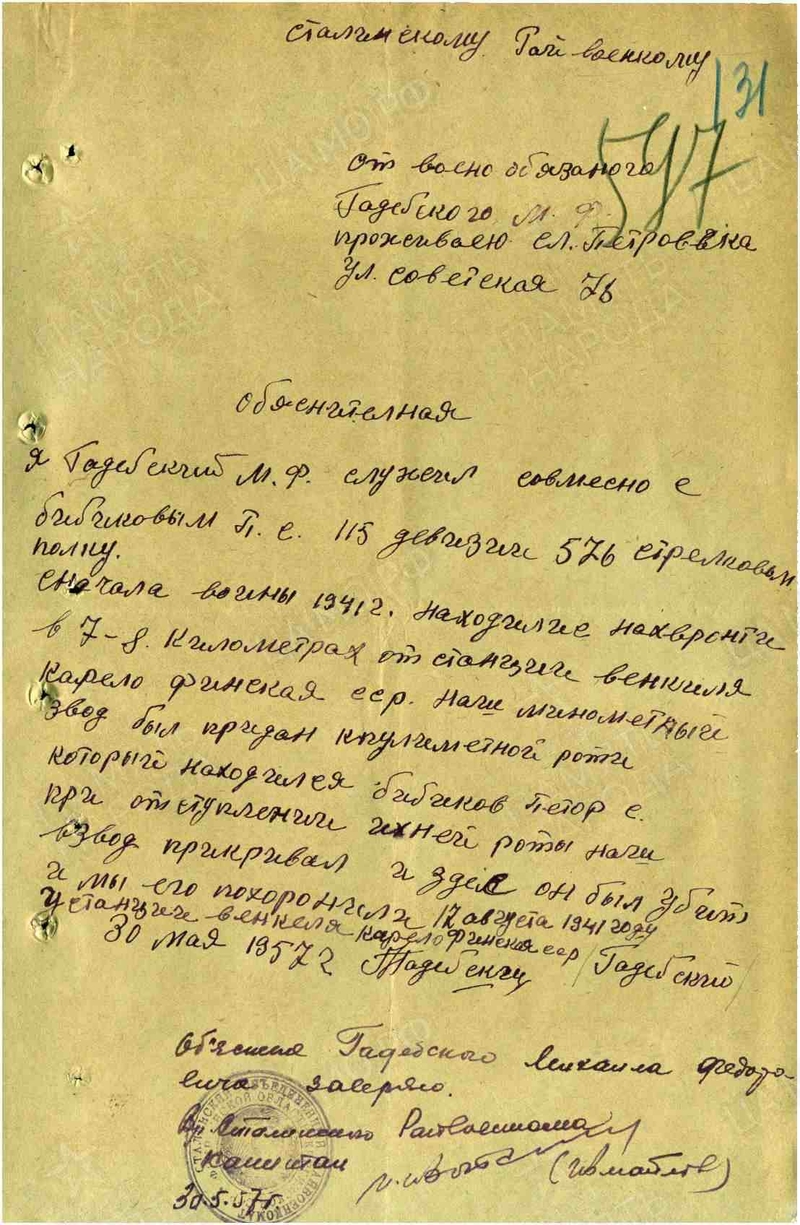 сталинскому Рай военкому
131
597
от воено обязаного
Гадебского М. Ф.
проживаею сл. Петроввка
ул. советская 76
обяснителная
я Гадебский М. Ф. служил совмесно с
бибиковым П. с. 115 девизии 576 стрелковым
полку.
сначала воины 1941 г. находилис нахвронти
в 7-8. километрах от станции венкиля
карело финская сср. наш минометный
звод был придан кпулиметной роти
который находился бибиков Петор с.
при отступлении ихней роты наш
взвод прикривал и здес он был убит
и мы его похоронили 12 августа 1941 году
у станции венкеля карело Финская сср
30 мая 1957 г /Гадебский/
Об'яснения Гадебского Михаила Федоро-
вича заверяю.
Вр. Сталинского Райвоенкома
капитан (Измайлов)
30.5.57г.
ПАМЯТЬ
НАРОДА
ЦАМО РФ